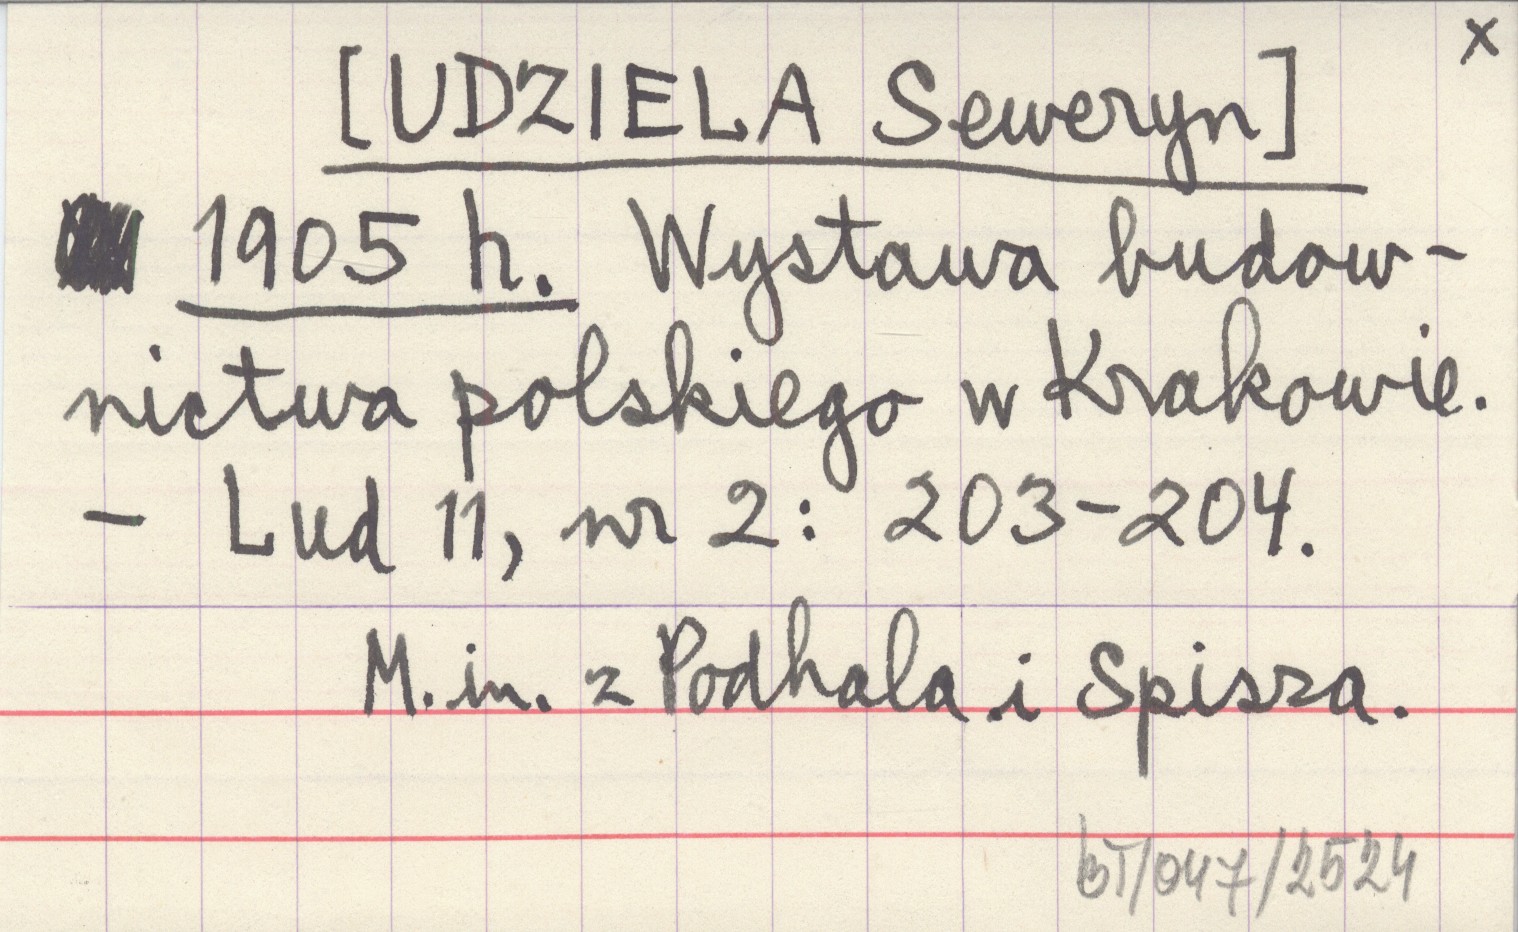 x
[UDZIELA Seweryn]
1905 h. Wystawa budow-
nictwa polskiego w Krakowie.
- Lud 11, nr 2: 203-204.
M.in. z Podhala i Spisza.
BT/047/2524